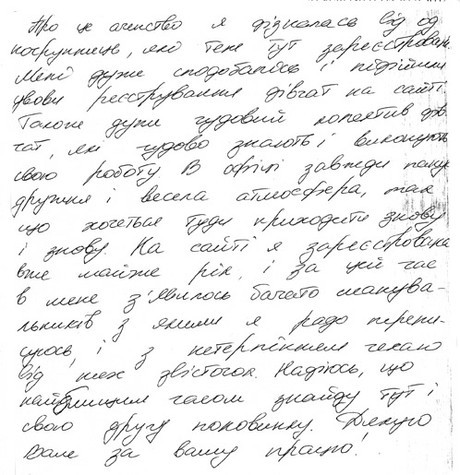 Про це агенство я дізналась від од
ногрупниць, які теж тут зареєстрован
Мені дуже сподобались і підійшли
умови реєстрування дівчат на сайті.
Також дуже чудовий колектив дів
чат, які чудово знають і виконують
свою роботу. В офісі завжди панує
дружня і весела атмосфера, так
що хочеться туди приходити знову
і знову. На сайті я зареєстрована
вже майже рік, і за цей час
в мене з'явилось багато шанува-
льників з якими я радо перепи-
суюсь, і з нетерпінням чекаю
від них звісточок. Надіюсь, що
найближчим часом знайду тут і
свою другу половинку. Дякую
Вам за вашу працю!